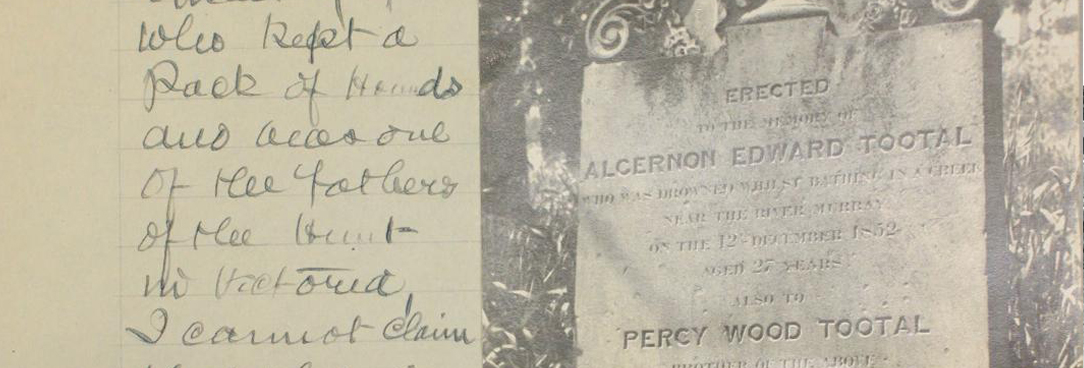 who kept a
Pack of Hounds
and was one
of the fathers
of the Hunt
in Victoria,
I cannot claim
ERECTED
TO THE MEMORY OF
ALGERNON EDWARD TOOTAL
WHO WAS DROWNED WHILST BATHING IN A CREEK
NEAR THE RIVER MURRAY
ON THE 12TH DECEMBER 1852
AGED 27 YEARS
ALSO TO
PERCY WOOD TOOTAL
BROTHER OF THE ABOVE